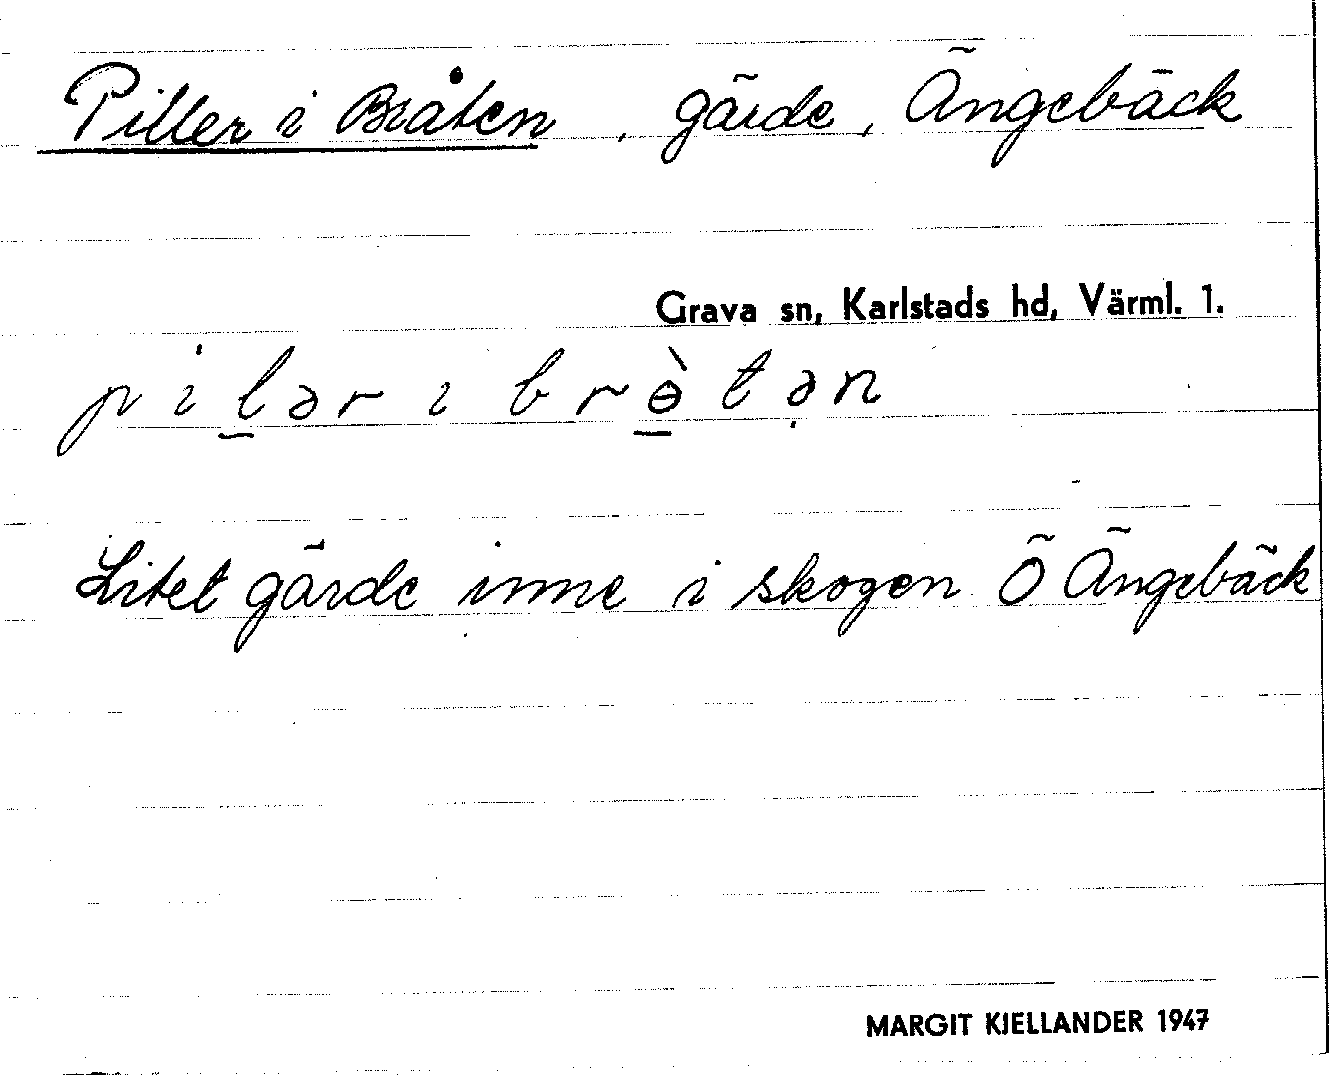 Piller i Bråten, gärde, Ängebäck
Grava sn, Karlstads hd, Värml. 1.
pil̲ər i brɵ̲̀tə̣n
Litet gärde inne i skogen Ö Ängebäck
MARGIT KJELLANDER 1947